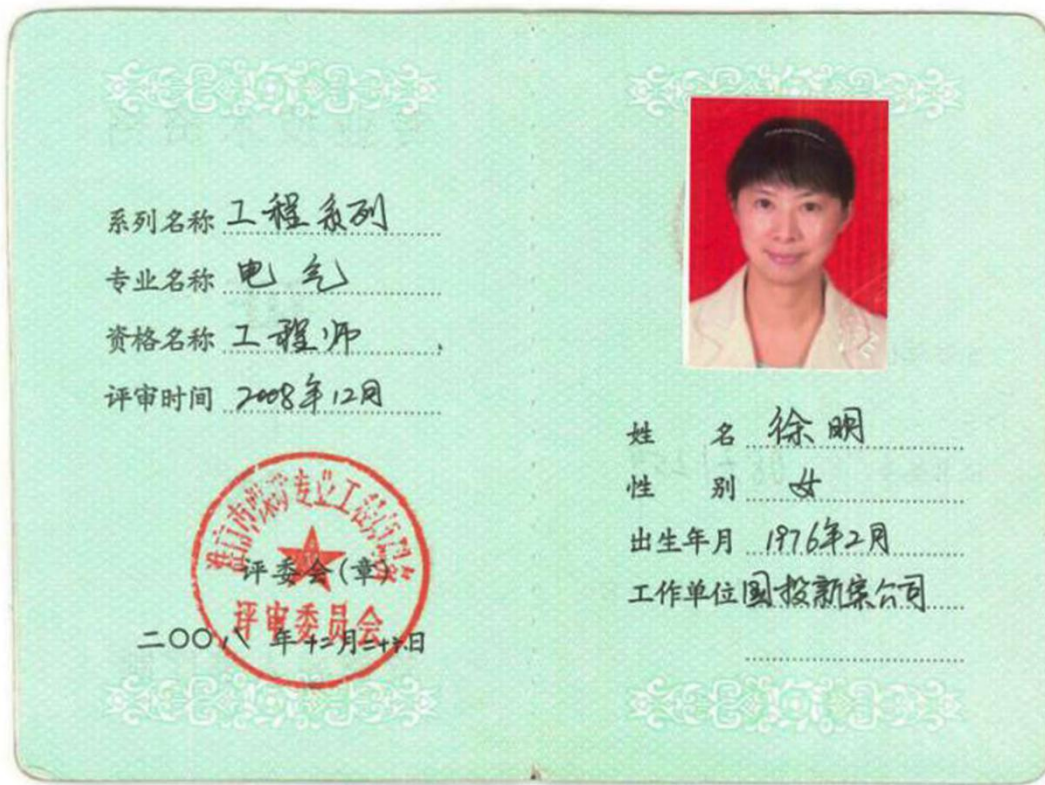 系列名称 工程系列
专业名称 电气
资格名称 工程师
评审时间 2008年12月
评委会(章)
评审委员会
二〇〇八年十二月二十 日
姓 名 徐明
性 别 女
出生年月 1976年2月
工作单位 国投新集公司